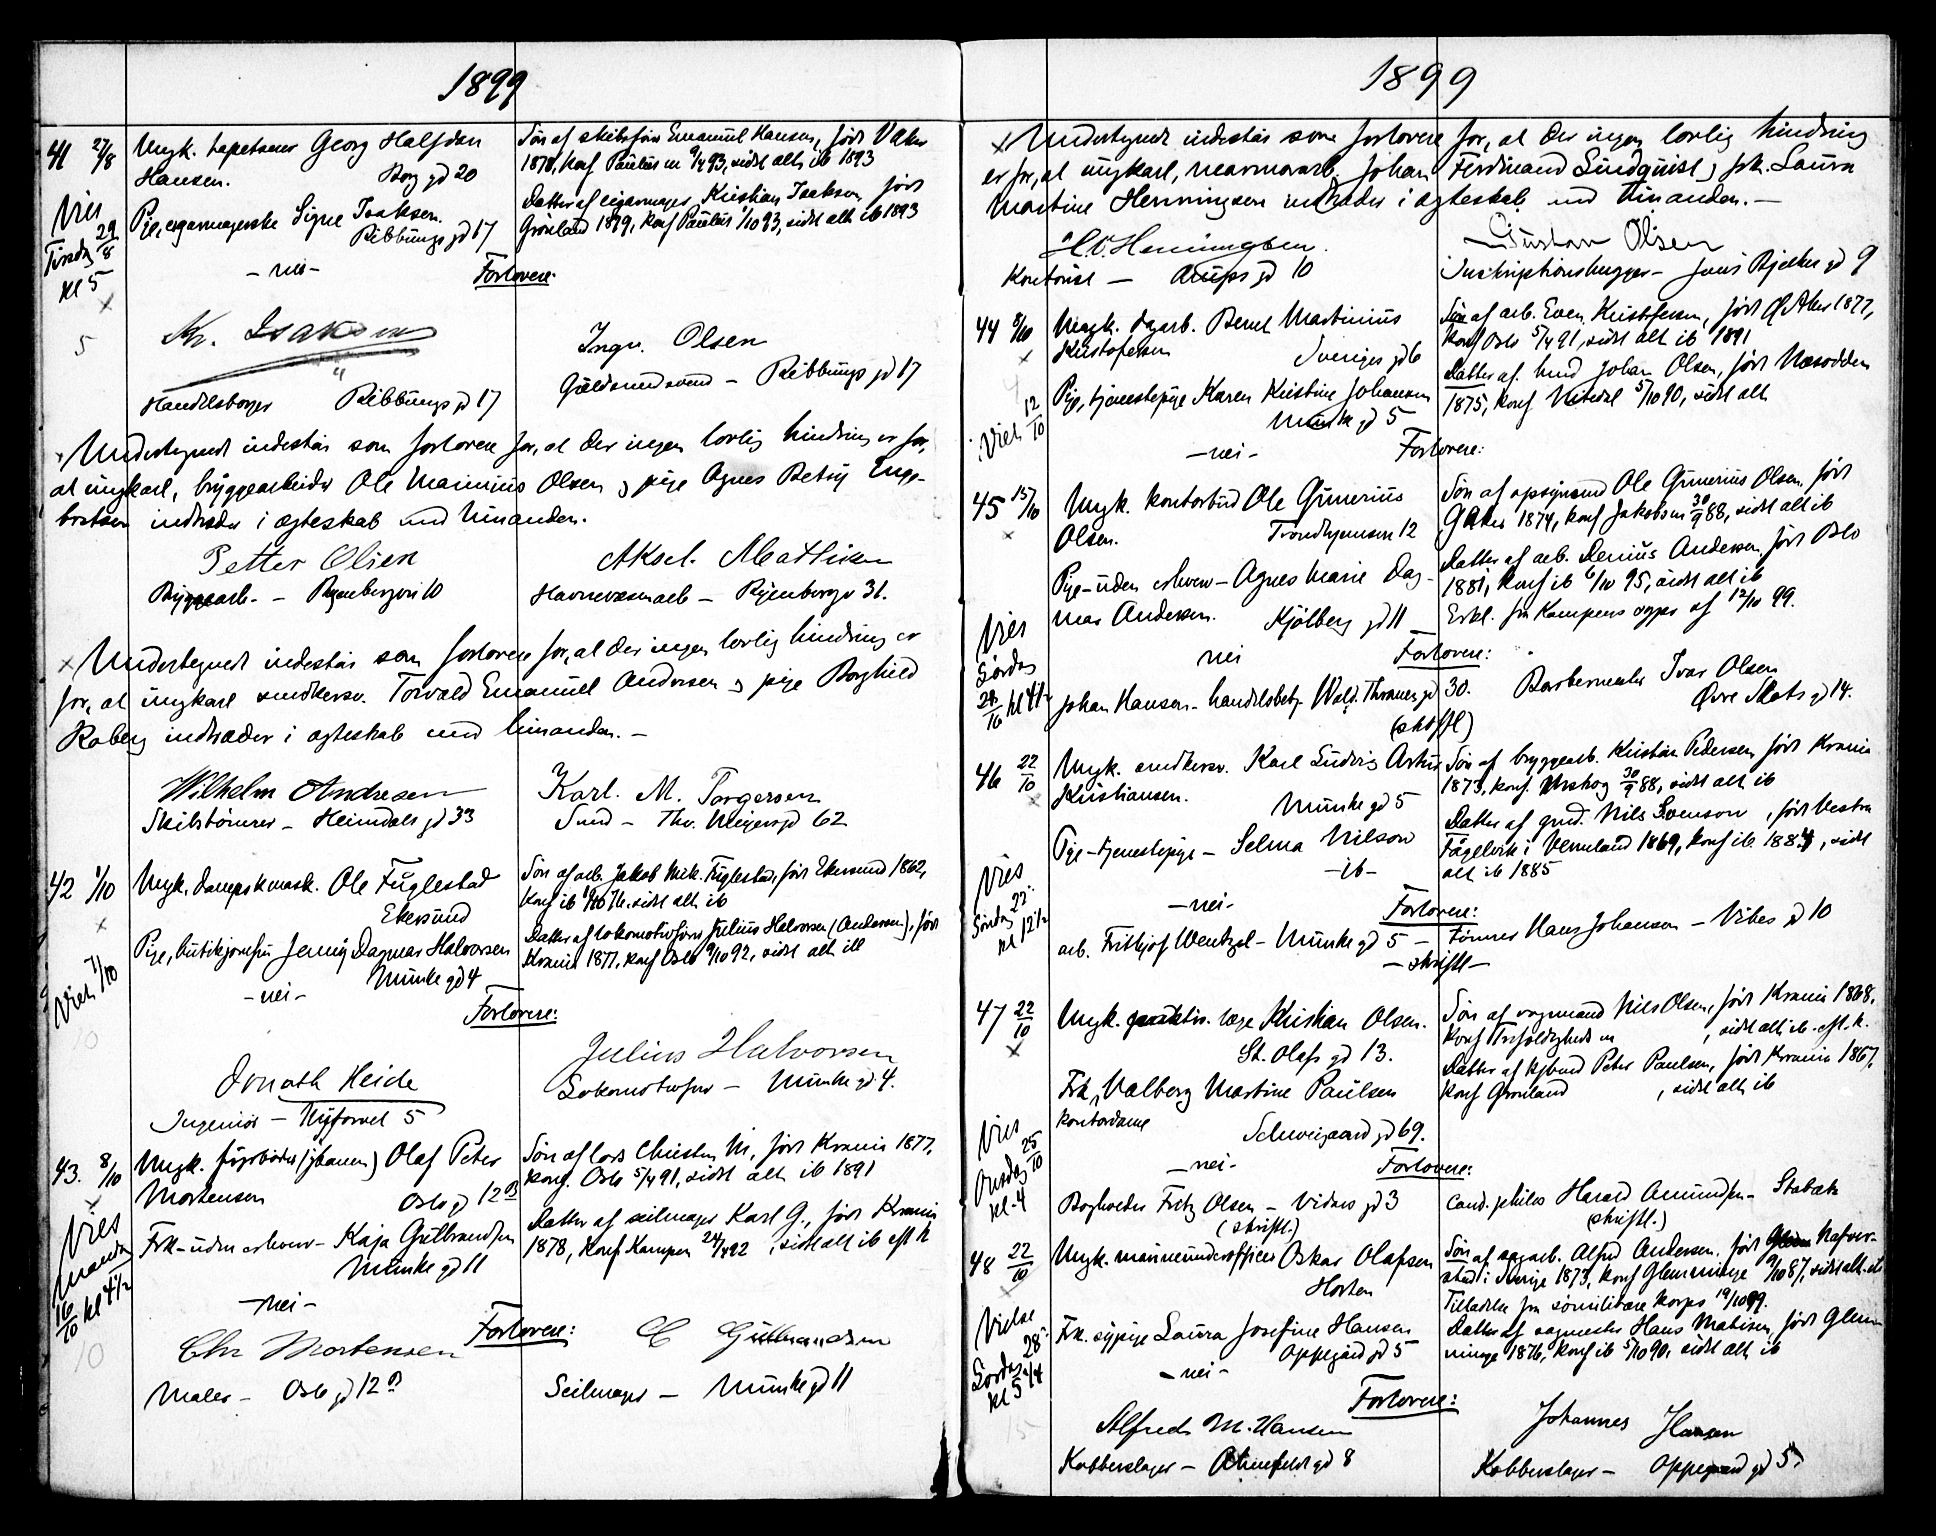 1899
41 27/8 Ungk. tapetserer Georg Halfdan
Hansen. Borg gd 20
Søn af skibsfører Emanuel Hansen, født V Aker
1878, konf Paulus m 9/4 93, sidst alt ib 1893
Vies
Tirsdag 29/8
kl 5
Pige, cigarmagerske Signe Isaksen.
Ribbungs gd 17
Datter af cigarmager Kristian Isaksen født
Grønland 1879, konf Paulus 1/10 93, sidst alt ib 1893
- nei -
Forlovere:
5
Kr. Isaksen
Ingv. Olsen
Handelsborger Ribbungs gd 17
Guldsmedsvend - Ribbungs gd 17
x Undertegnede indestår som forlovere for, at der ingen lovlig hindring er for,
at ungkarl, bryggearbeider Ole Marinius Olsen og pige Agnes Betsy Enge-
bretsen indtræder i ægteskab med hinanden.
Petter Olsen
Aksel. Mathisen
Bryggearb. - Ryenbergvei 10
Havnevæsenarb - Ryenbergv 31.
x Undertegnede indestår som forlovere for, at der ingen lovlig hindring er
for, at ungkarl snedkersv. Torvald Emanuel Andersen og pige Borghild
Raberg indtræder i ægteskab med hinanden. -
Wilhelm Andresen
Karl. M. Torgersen
Skibstømrer - Heimdals gd 33
Smed - Thv. Meyers gd 62
42 1/10 Ungk. dampskmask. Ole Fuglestad
Ekersund
Søn af arb. Jakob Mik. Fuglestad, født Ekersund 1862,
konf ib 1/10 76. sidst alt ib
x
Viet 7/10
Pige, butikjomfru Jenny Dagmar Halvorsen
Munke gd 4
Datter af lokomotivfører Julius Halvorsen (Andersen), født
Krania 1877, konf Oslo 9/10 92, sidst alt ib
- nei -
Forlovere:
10
Jonath Heide
Julius Halvorsen
Ingeniør - Nytorvet 5
Lokomotivfører - Munke gd 4.
43. 8/10 Ungk. fyrbøder (jbanen) Olaf Peter
Mortensen Oslo gd 12 B
Søn af lods Christen M, født Krania 1877,
konf. Oslo 5/4 91, sidst alt ib 1891
x
Vies
Mandag
16/10 kl 4 1/2
Frk - uden erhverv - Kaja Gulbrandsen
Munke gd 11
Datter af seilmager Karl G., født Krania
1878, konf Kampen 24/4 92, sidst alt ib eft k
- nei -
Forlovere:
10
Chr Mortensen
C Gulbrandsen
Maler - Oslo gd 12 B
Seilmager - Munke gd 11
1899
x Undertegnede indestår som forlovere for, at der ingen lovlig hindring
er for, at ungkarl, marmorarb. Johan Ferdinand Lindquist og frk. Laura
Martine Henningsen indtræder i ægteskab med hinanden. -
H. C. Henningsen.
Gustav Olsen
Kontorist - Arups gd 10
Inskriptionshugger - Jens Bjelkes gd 9
44 8/10 Ungk. dagarb. Bernt Martinius
Kristofersen Sveriges gd 6
Søn af arb. Even Kristofersen, født Ø Aker 1877,
konf Oslo 5/4 91, sidst alt ib 1891
x
Viet 12/10
Pige, tjenestepige Karen Kristine Johansen
Munke gd 5
Datter af smed Johan Olsen, født Næsodden
1875, konf 5/10 90, sidst alt
- nei -
Forlovere:
45 15/10 Ungk. kontorbud Ole Gunerius
Olsen. Trondhjemsvn 12
Søn af opsynsmd Ole Gunerius Olsen, født
Ø Aker 1874, konf Jakobs m 30/9 88, sidst alt ib
x
Pige - uden erhverv - Agnes Marie Dag-
mar Andersen. Kjølberg gd 11
Datter af arb. Denius Andersen, født Oslo
1881, konf ib 6/10 95, sidst alt ib
Erkl. fra Kampens sogpr af 12/10 99.
Vies
Lørdag
28/10 kl 4 1/2
nei
Forlovere:
Johan Hansen - handelsbetj. Wald. Thranes gd 30.
(skriftl)
Barbermester Ivar Olsen
Øvre Slots gd 14.
46 22/10 Ungk. snedkersv. Karl Ludvig Artur
Kristiansen. Munke gd 5
Søn af bryggearb. Kristian Pedersen født Krania
1873, konf. Urskog 30/9 88, sidst alt ib
x
Pige - tjenestepige - Selma Nilson
- ib -
Datter af grd. Nils Svenson, født Vestra
Fågelvik i Vermland 1869, konf ib 1884, sidst
alt ib 1885
Vies
Søndag 22.
kl 12 1/2
- nei -
Forlovere:
arb. Fritjof Wentzel - Munke gd 5 - tømrer Hans Johansen - Vibes gd 10
- skriftl -
47 22/10 Ungk. praktis. læge Kristian Olsen.
St. Olafs gd 13.
Søn af vognmand Nils Olsen, født Krania 1868,
konf Trefoldigheds m, sidst alt ib. eft. k.
x
Frk, Valborg Martine Paulsen
kontordame
Schweigaard gd 69.
Datter af kjbmd Peter Paulsen, født Krania 1867,
konf Grønland, sidst alt ib
Vies
Onsdag 25/10
kl. 4
- nei -
Forlovere:
Bogholder Fritz Olsen - Vidars gd 3
(skriftl.)
cand. philos Harald Amundsen - Stabæk
(skriftl.)
48 22/10 Ungk. marineunderofficer Oskar Olafsen
Horten
Søn af sagarb. Alfred Andersen. født Nafver-
stad i Sverige 1873, konf Glemminge 9/10 87, sidst alt ib
Tilladelse fra sømilitære korps 19/10 99.
x
Vielse
28.
Lørdag
kl 5 3/4
Frk. sypige Laura Josefine Hansen
Oppegård gd 5
Datter af sagmester Hans Matisen, født Glem-
minge 1876, konf ib 5/10 90, sidst alt ib
- nei -
Forlovere:
15
Alfred M. Hansen
Johannes Hansen
Kobberslager - gd 8
Kobberslager - Oppegård gd 5